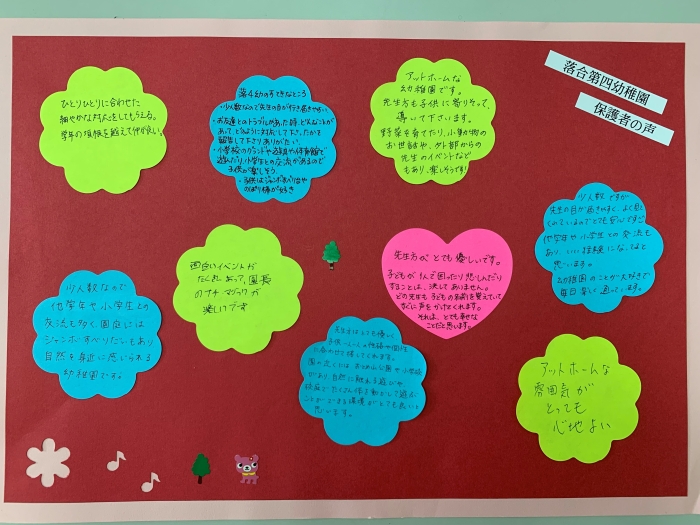 落合第四幼稚園
保護者の声
ひとりひとりに合わせた
細やかな対応をしてもらえる。
学年の垣根を越えて仲が良い。
第4幼のすてきなところ
・少人数なので先生の目が行き届きやすい
・お友達とのトラブルがあった時、どんなことが
あって、どのように対応して下さったかを
報告して下さりありがたい。
・小学校のグランドや遊具や体育館で
遊んだり、小学生との交流があるので
子供が楽しそう。
・子供はジャンボすべり台や
のぼり棒が好き
アットホームな
幼稚園です。
先生方も子供に寄りそって、
導いて下さいます。
野菜を育てたり、小動物の
お世話や、外部からの
先生のイベントなど
もあり、楽しそうです!
少人数ですが
先生の目が届きやすく、よく見て
くれているのでとても安心ですし
他学年や小学生との交流も
あり、いい経験になっていると
思います。
幼稚園のことが大好きで
毎日楽しく通っています。
面白いイベントが
たくさんあって、園長
のプチマジックが
楽しいです
先生方がとても優しいです。
子どもが1人で困ったり悲しんだり
することは、決してありません。
どの先生も子どもの名前を覚えていて
すぐに声をかけてくれます。
それは、とても幸せな
ことだと思います。
少人数なので
他学年や小学生との
交流も多く、園庭には
ジャンボすべりだいもあり
自然を身近に感じられる
幼稚園です。
先生はとても優しく
子供一人一人の性格や個性
に合わせて接してくれます。
園の近くには おとめ山公園や小学校
があり、自然に触れる遊びや
校庭でたくさん体を動かして遊ぶ
ことができる環境がとても良いと
思います。
アットホームな
雰囲気が
とっても
心地よい